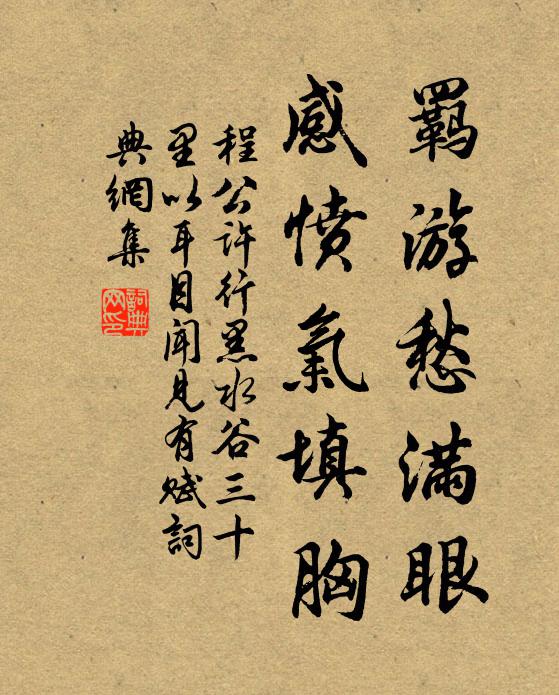 羈游愁滿眼
感憤氣填胸
程公許行黑水谷三十
里以耳目聞見有賦詞
典網集
詞典網印